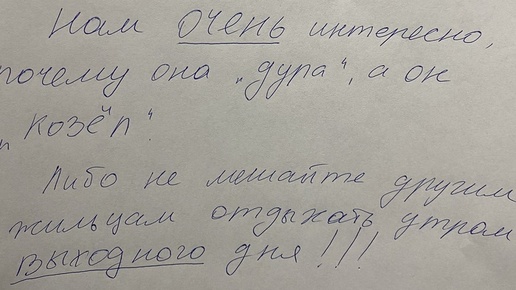 Нам ОЧЕНЬ интересно,
почему она „дура“, а он
„козёл“.
Либо не мешайте другим
жильцам отдыхать утром
выходного дня!!!